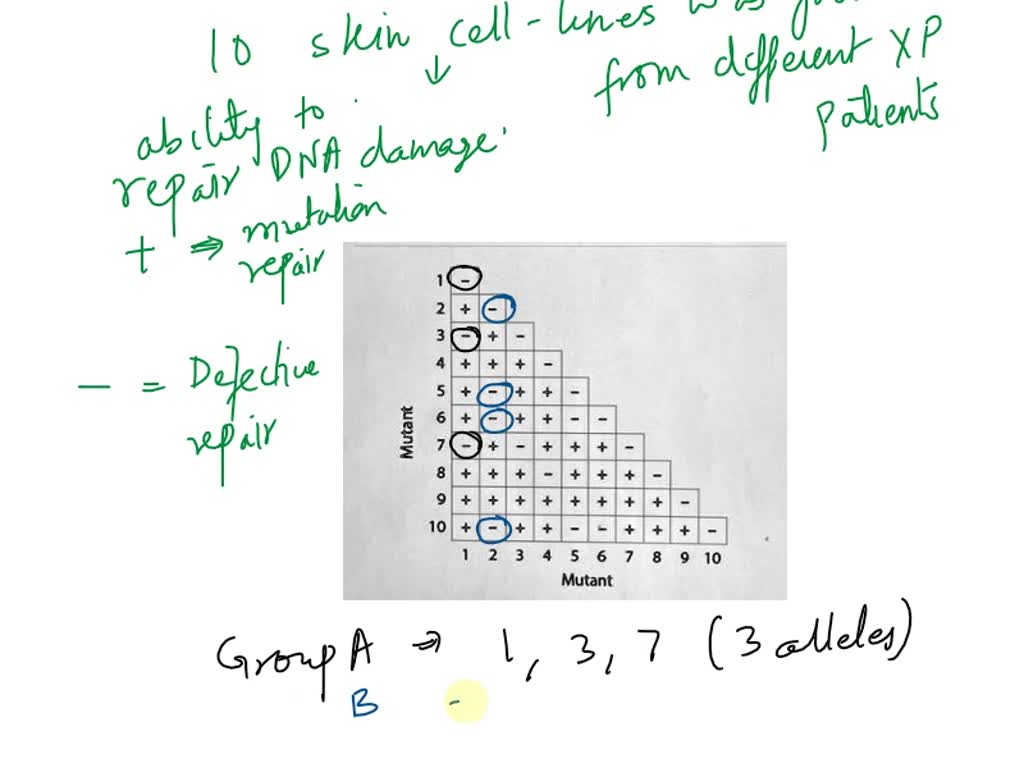 10 skin cell-lines was
from different XP
patients
ability to
repair DNA damage
+ ⇒ mutation
repair
- = Defective
repair
1 -
2 + -
3 - + -
4 + + + -
5 + - + + -
6 + - + + - -
7 - + - + + + -
8 + + + - + + + -
9 + + + + + + + + -
10 + - + + - - + + + -
1 2 3 4 5 6 7 8 9 10
Mutant
Mutant
Group A ⇒ 1, 3, 7 (3 alleles)
B -